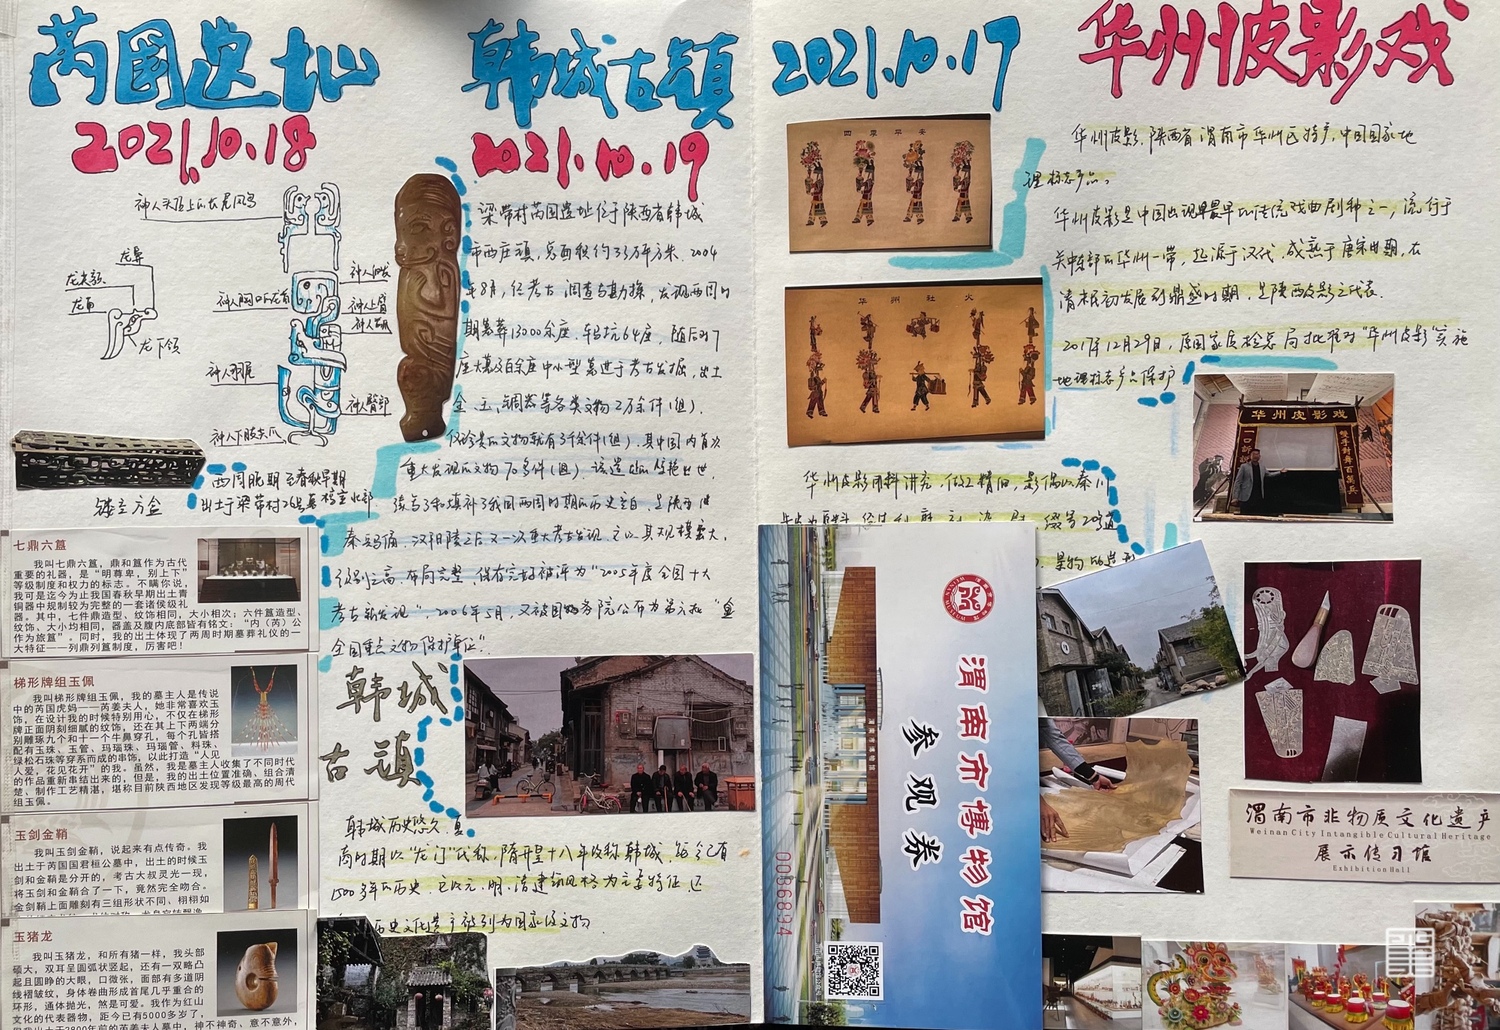 芮国遗址
2021.10.18
韩城古镇
2021.10.19
神人头顶上的龙尾凤鸟
龙鼻
龙头颈
龙角
龙下颌
神人胸口的龙首
神人上臂
神人臂部
神人下肢与爪
镂空方盒
西周晚期至春秋早期
出土于梁带村26号墓椁室北部
七鼎六簋
我叫七鼎六簋,鼎和簋作为古代
重要的礼器,是“明尊卑,别上下”
等级制度和权力的标志。不瞒你说,
我可是迄今为止我国春秋早期出土青
铜器中规制较为完整的一套诸侯级礼
器。其中,七件鼎造型、纹饰相同,大小相次;六件簋造型、
纹饰、大小均相同,器盖及腹内底部皆有铭文:“内(芮)公
作为旅簋”。同时,我的出土体现了两周时期墓葬礼仪的一
大特征——列鼎列簋制度,厉害吧!
梯形牌组玉佩
我叫梯形牌组玉佩,我的墓主人是传说
中的芮国虎妈——芮姜夫人,她非常喜欢玉
饰,在设计我的时候特别用心,不仅在梯形
牌正面阴刻细腻的纹饰,还在其上下两端分
别雕琢九个和十一个牛鼻穿孔,每个孔皆搭
配有玉珠、玉管、玛瑙珠、玛瑙管、料珠、
绿松石珠等穿系而成的串饰,以此打造“人见
人爱,花见花开”的我。虽然,我是墓主人收集了不同时代
的作品重新串结出来的,但是,我的出土位置准确、组合清
楚、制作工艺精湛,堪称目前陕西地区发现等级最高的周代
组玉佩。
玉剑金鞘
我叫玉剑金鞘,说起来有点传奇。我
出土于芮国国君桓公墓中,出土的时候玉
剑和金鞘是分开的,考古大叔灵光一现,
将玉剑和金鞘合了一下,竟然完全吻合。
金剑鞘上面雕刻有三组形状不同、栩栩如
玉猪龙
我叫玉猪龙,和所有猪一样,我头部
硕大,双耳呈圆弧状竖起,还有一双略凸
起且圆睁的大眼,口微张,面部有多道阴
线褶皱纹,身体卷曲形成首尾几乎重合的
环形,通体抛光,煞是可爱。我作为红山
文化的代表器物,距今已有5000多岁了,
梁带村芮国遗址位于陕西省韩城
市西庄镇,总面积约33万平方米。2004
年8月,经考古调查与勘探,发现两周时
期墓葬1300余座,车马坑64座,随后对7
座大墓及百余座中小型墓进行考古发掘,出土
金、玉、铜器等各类文物2万余件(组),
仅珍贵的文物就有3千余件(组),其中国内首次
重大发现的文物70多件(组)。该遗址的
秦兵马俑、汉阳陵之后又一次重大考古发现。它以其规模宏大,
级别之高,布局完整,保存完好被评为“2005年度全国十大
考古新发现”。2006年5月,又被国务院公布为第六批“全
全国重点文物保护单位”。
韩城
古镇
韩城历史悠久,夏
商时期以“龙门”代称,隋开皇十八年改称韩城,距今已有
1500多年的历史。它以元、明、清建筑风格为主要特征,还
历史文化遗产被列为国家级文物
2021.10.17
华州皮影戏
四季平安
华州社火
华州皮影,陕西省渭南市华州区特产,中国国家地
理标志产品。
华州皮影是中国出现最早的传统戏曲剧种之一,流行于
关中东部的华州一带,起源于汉代,成熟于唐宋时期,在
清末初发展到鼎盛时期,是陕西皮影之代表。
2017年12月29日,原国家质检总局批准对“华州皮影”实施
地理标志产品保护
华州皮影戏
华州皮影用料讲究,做工精细,影偶以秦川
渭南市博物馆
参观券
渭南市非物质文化遗产
Weinan City Intangible Cultural Heritage
展示传习馆
Exhibition Hall